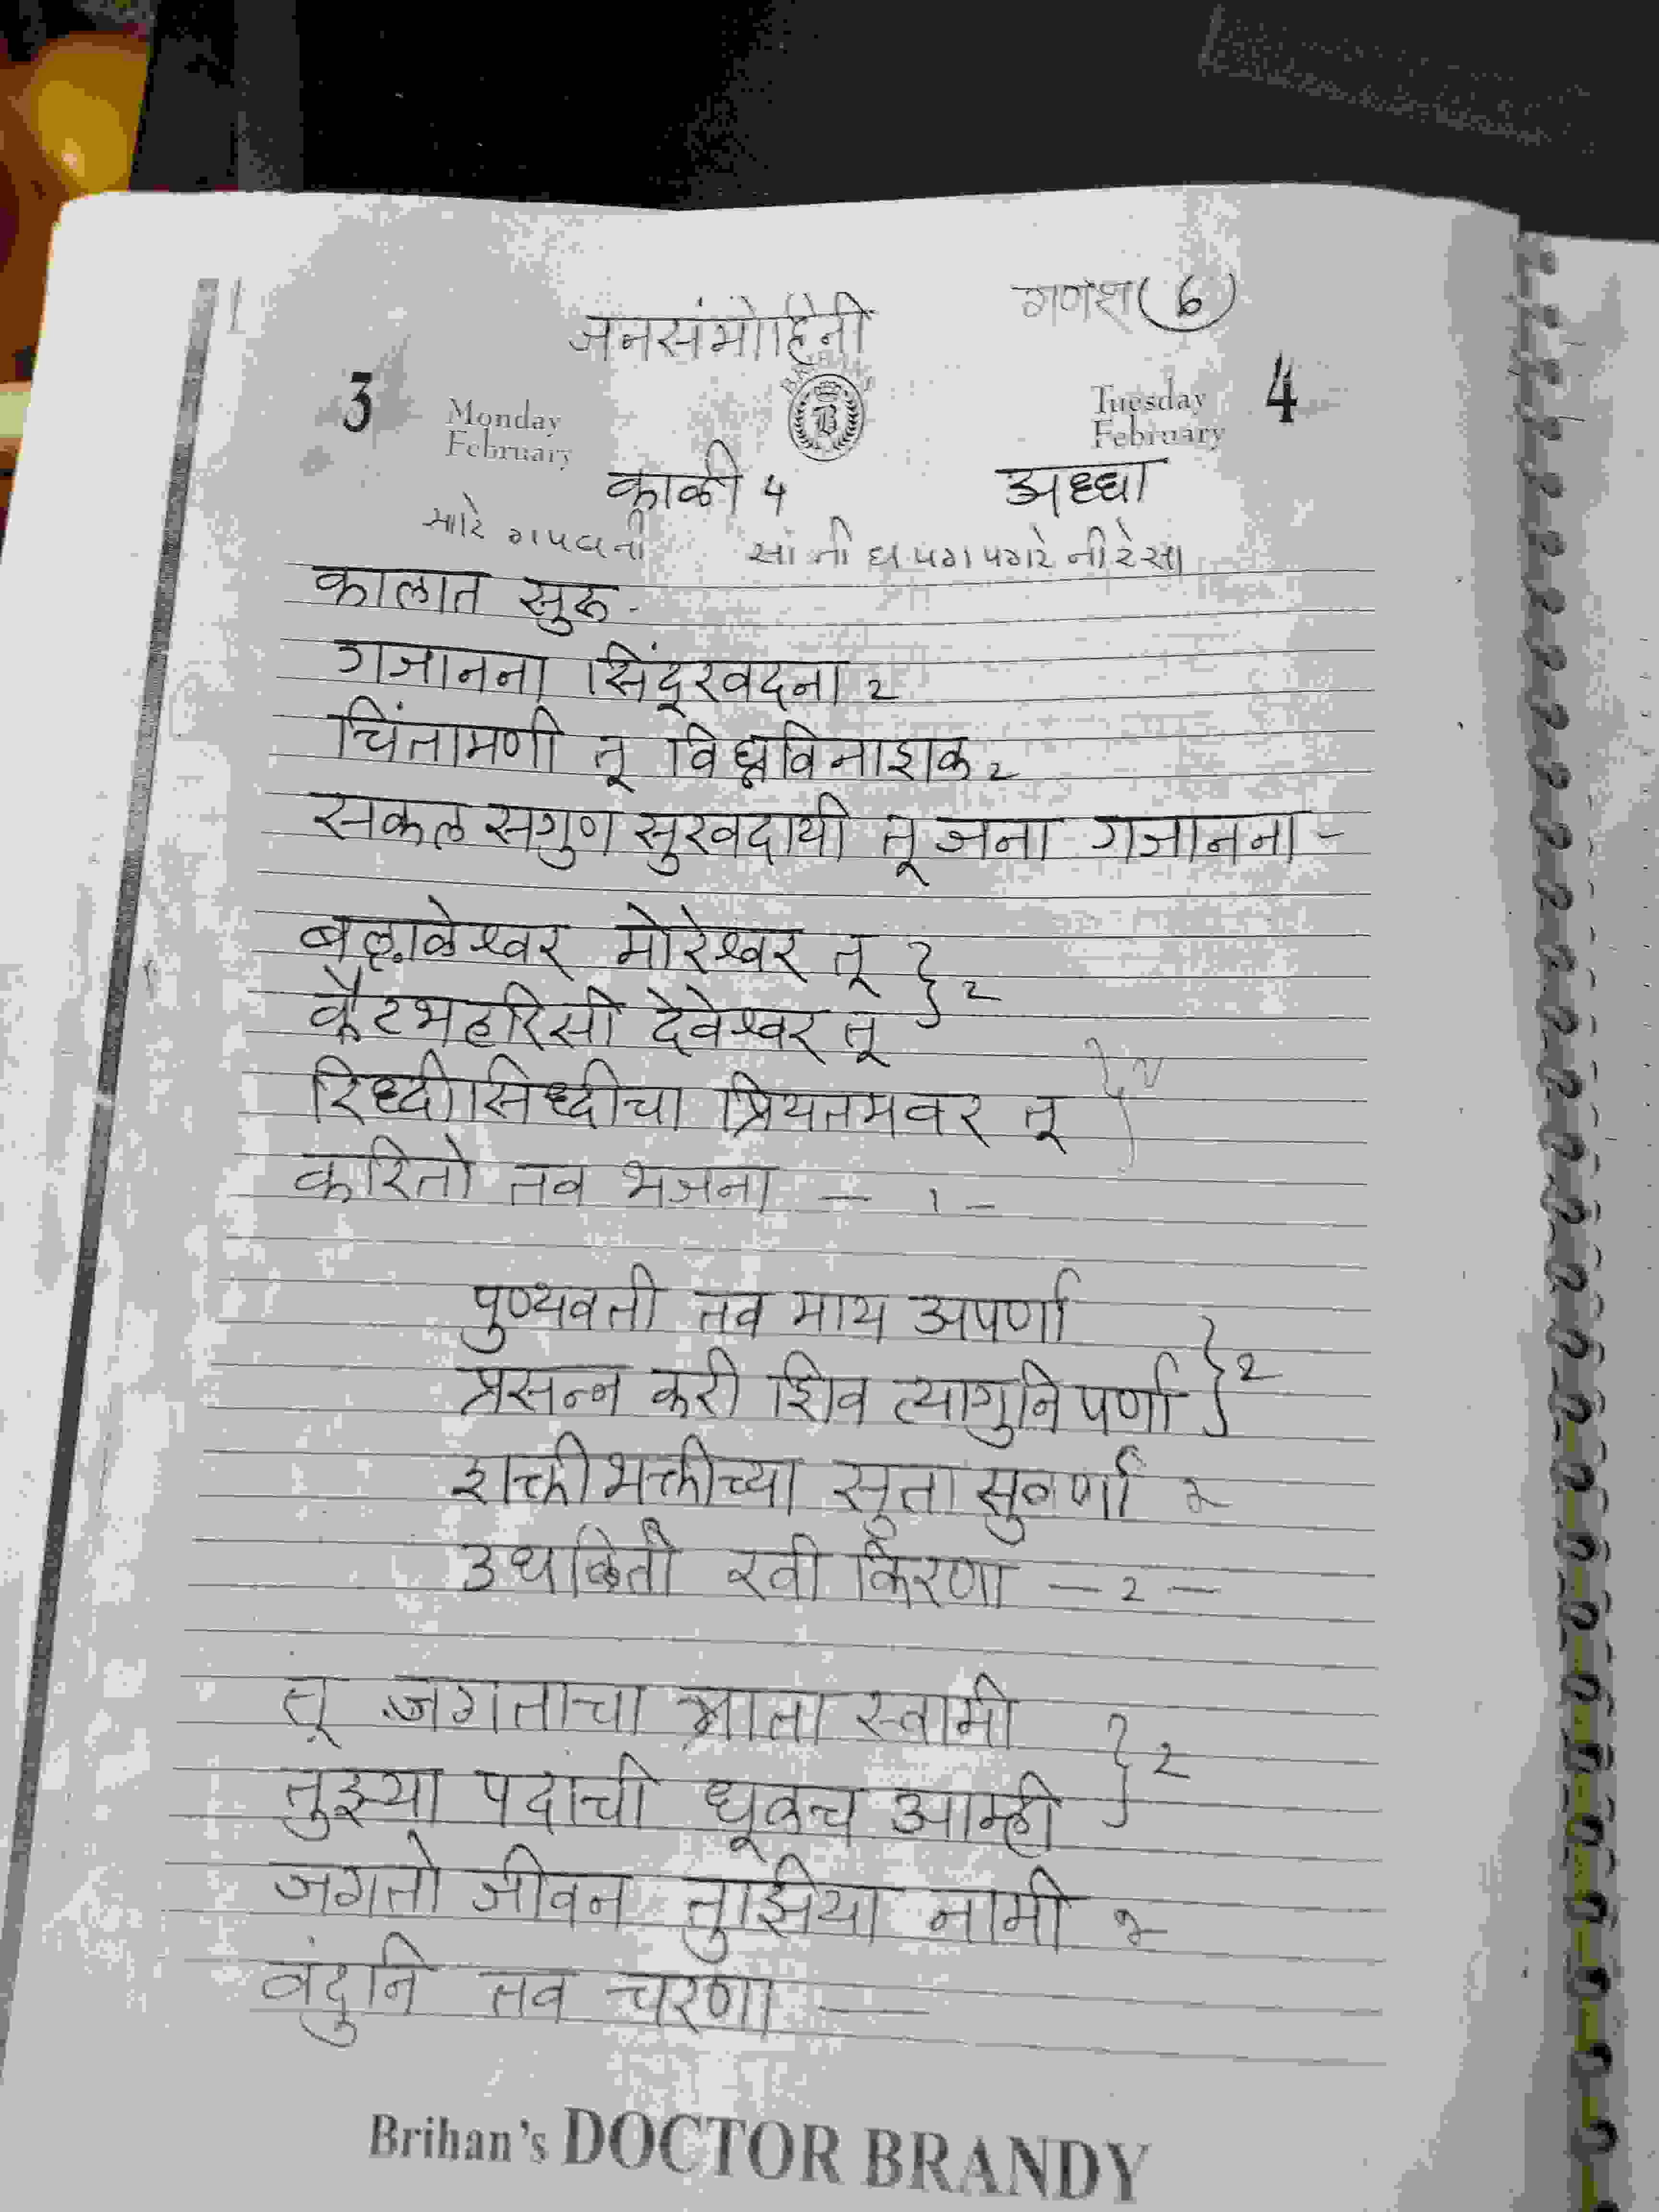 गणेश (6)
जनसंमोहिनी
3 Monday February
B
Tuesday February 4
काळी 4 अध्धा
સારે ગપધની સાં ની ધ પગ પગરે નીરેસા
कालात सुरू -
गजानना सिंदूरवदना 2
चिंतामणी तू विघ्नविनाशक 2
सकल सगुण सुखदायी तू जना गजानना -
बल्लाळेश्वर मोरेश्वर तू } 2
कैटभहरिसी देवेश्वर तू
रिध्दीसिध्दीचा प्रियतमवर तू
करितो तव भजना — १ —
पुण्यवती तव माय अपर्णा
प्रसन्न करी शिव त्यागुनि पर्णा } 2
शक्तीभक्तीच्या सुता सुवर्णा २
उधळिती रवी किरणा — 2 —
तू जगताचा त्राता स्वामी } 2
तुझ्या पदाची धूळच आम्ही
जगतो जीवन तुझिया नामी २
वंदुनि तव चरणा —
Brihan's DOCTOR BRANDY